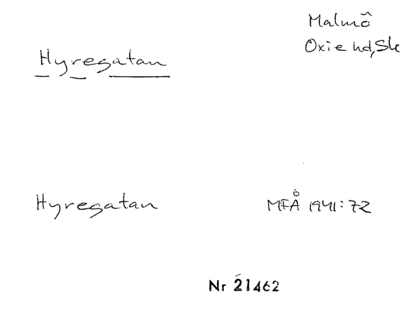 Malmö
Oxie hd, Sk
Hyregatan
Hyregatan
MFÅ 1941:72
Nr 21462